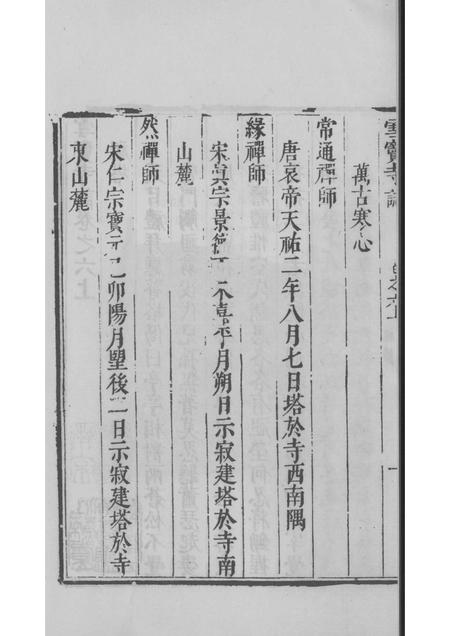 雪竇寺誌
卷之六上
萬古寒心
常通禪師
唐哀帝天祐二年八月七日塔於寺西南隅
緣禪師
宋真宗景德丁未嘉平月朔日示寂建塔於寺南
山麓
然禪師
宋仁宗寶元己卯陽月望後二日示寂建塔於寺
東山麓